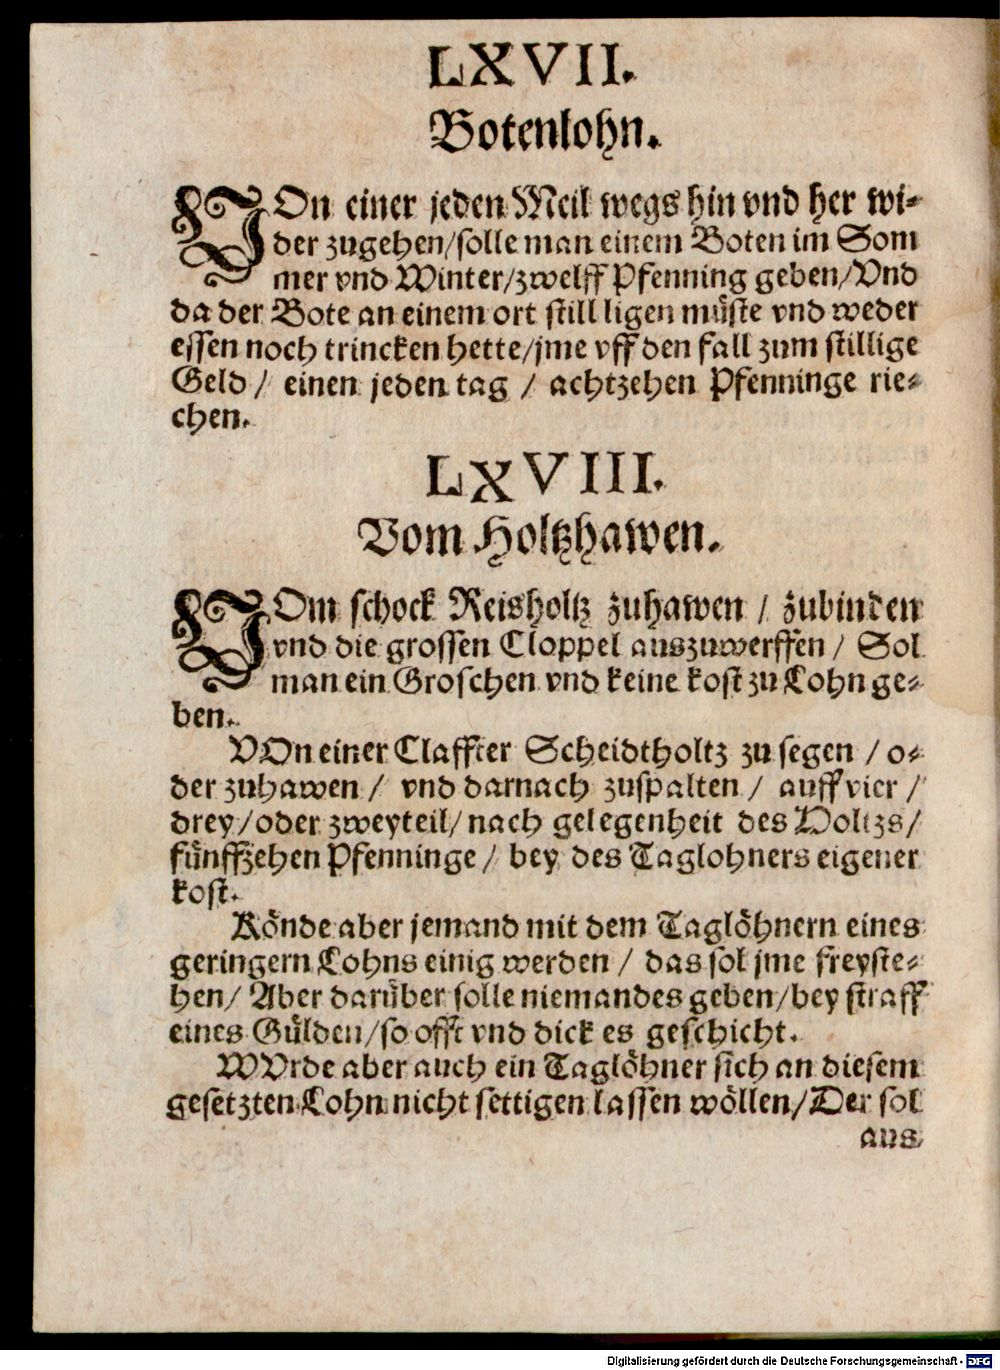 LXVII.
Botenlohn.
VOn einer jeden Meil wegs hin vnd her wi-
der zugehen/solle man einem Boten im Som
mer vnd Winter/zwelff Pfenning geben/Vnd
da der Bote an einem ort still ligen müste vnd weder
essen noch trincken hette/jme vff den fall zum stillige
Geld / einen jeden tag / achtzehen Pfenninge rie-
chen.
LXVIII.
Vom Holtzhawen.
VOm schock Reisholtz zuhawen / zubinden
vnd die grossen Cloppel auszuwerffen / Sol
man ein Groschen vnd keine kost zu Lohn ge-
ben.
VOn einer Claffter Scheidtholtz zu segen / o-
der zuhawen / vnd darnach zuspalten / auff vier /
drey/oder zweyteil/nach gelegenheit des Holtzs/
fünffzehen Pfenninge / bey des Taglohners eigener
kost.
Könde aber jemand mit dem Taglöhnern eines
geringern Lohns einig werden / das sol jme freyste-
hen/ Aber darüber solle niemandes geben/bey straff
eines Gülden/so offt vnd dick es geschicht.
WVrde aber auch ein Taglöhner sich an diesem
gesetzten Lohn nicht settigen lassen wöllen/Der sol
aus
Digitalisierung gefördert durch die Deutsche Forschungsgemeinschaft - DFG